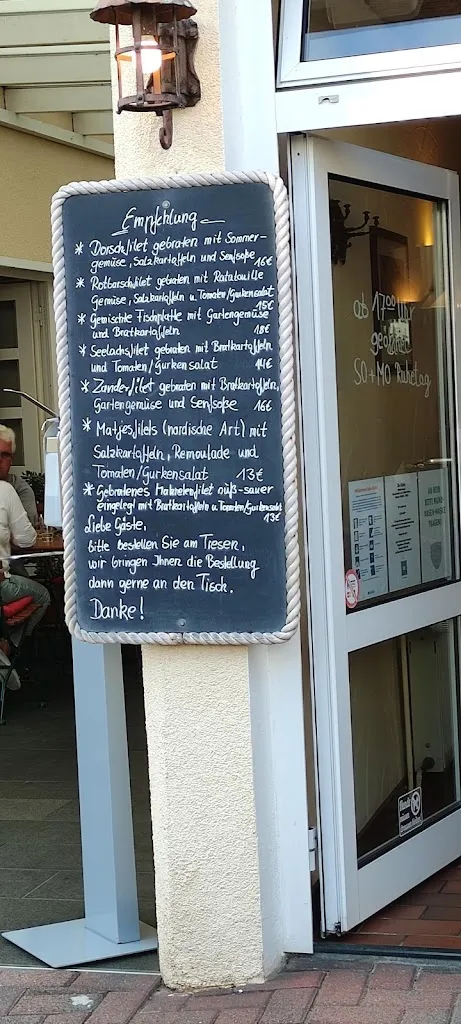 Empfehlung
* Dorschfilet gebraten mit Sommer-
gemüse, Salzkartoffeln und Senfsoße
16€
* Rotbarschfilet gebraten mit Ratatouille
Gemüse, Salzkartoffeln u. Tomaten/Gurkensalat
15€
* Gemischte Fischplatte mit Gartengemüse
und Bratkartoffeln 18€
* Seelachsfilet gebraten mit Bratkartoffeln
und Tomaten/Gurkensalat 14€
* Zanderfilet gebraten mit Bratkartoffeln,
Gartengemüse und Senfsoße 16€
* Matjesfilets (nordische Art) mit
Salzkartoffeln, Remoulade und
Tomaten/Gurkensalat 13€
* Gebratenes Makrelenfilet süß-sauer
eingelegt mit Bratkartoffeln u. Tomaten/Gurkensalat
13€
Liebe Gäste,
bitte bestellen Sie am Tresen,
wir bringen Ihnen die Bestellung
dann gerne an den Tisch.
Danke!
ab 17⁰⁰ Uhr
geöffnet
SO+MO Ruhetag